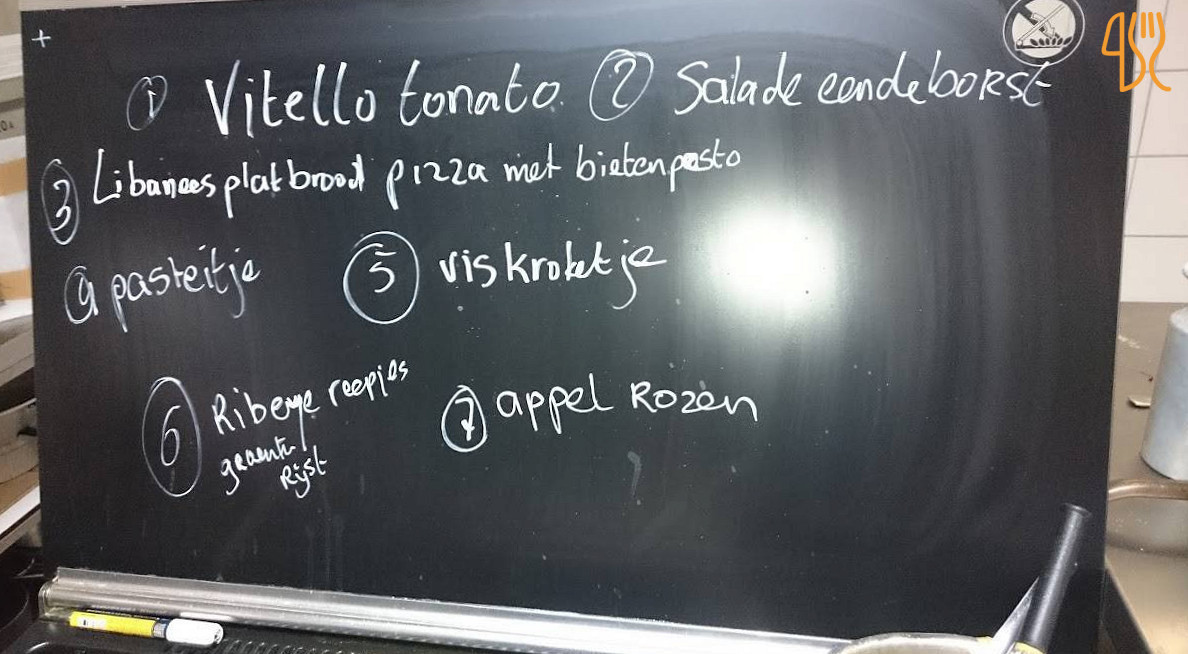 1 Vitello tonato. 2 Salade eendeborst
3 Libanees platbrood pizza met bietenpesto
4 pasteitje 5 viskroketje
6 Ribeye reepjes 7 appel Rozen
groente
Rijst